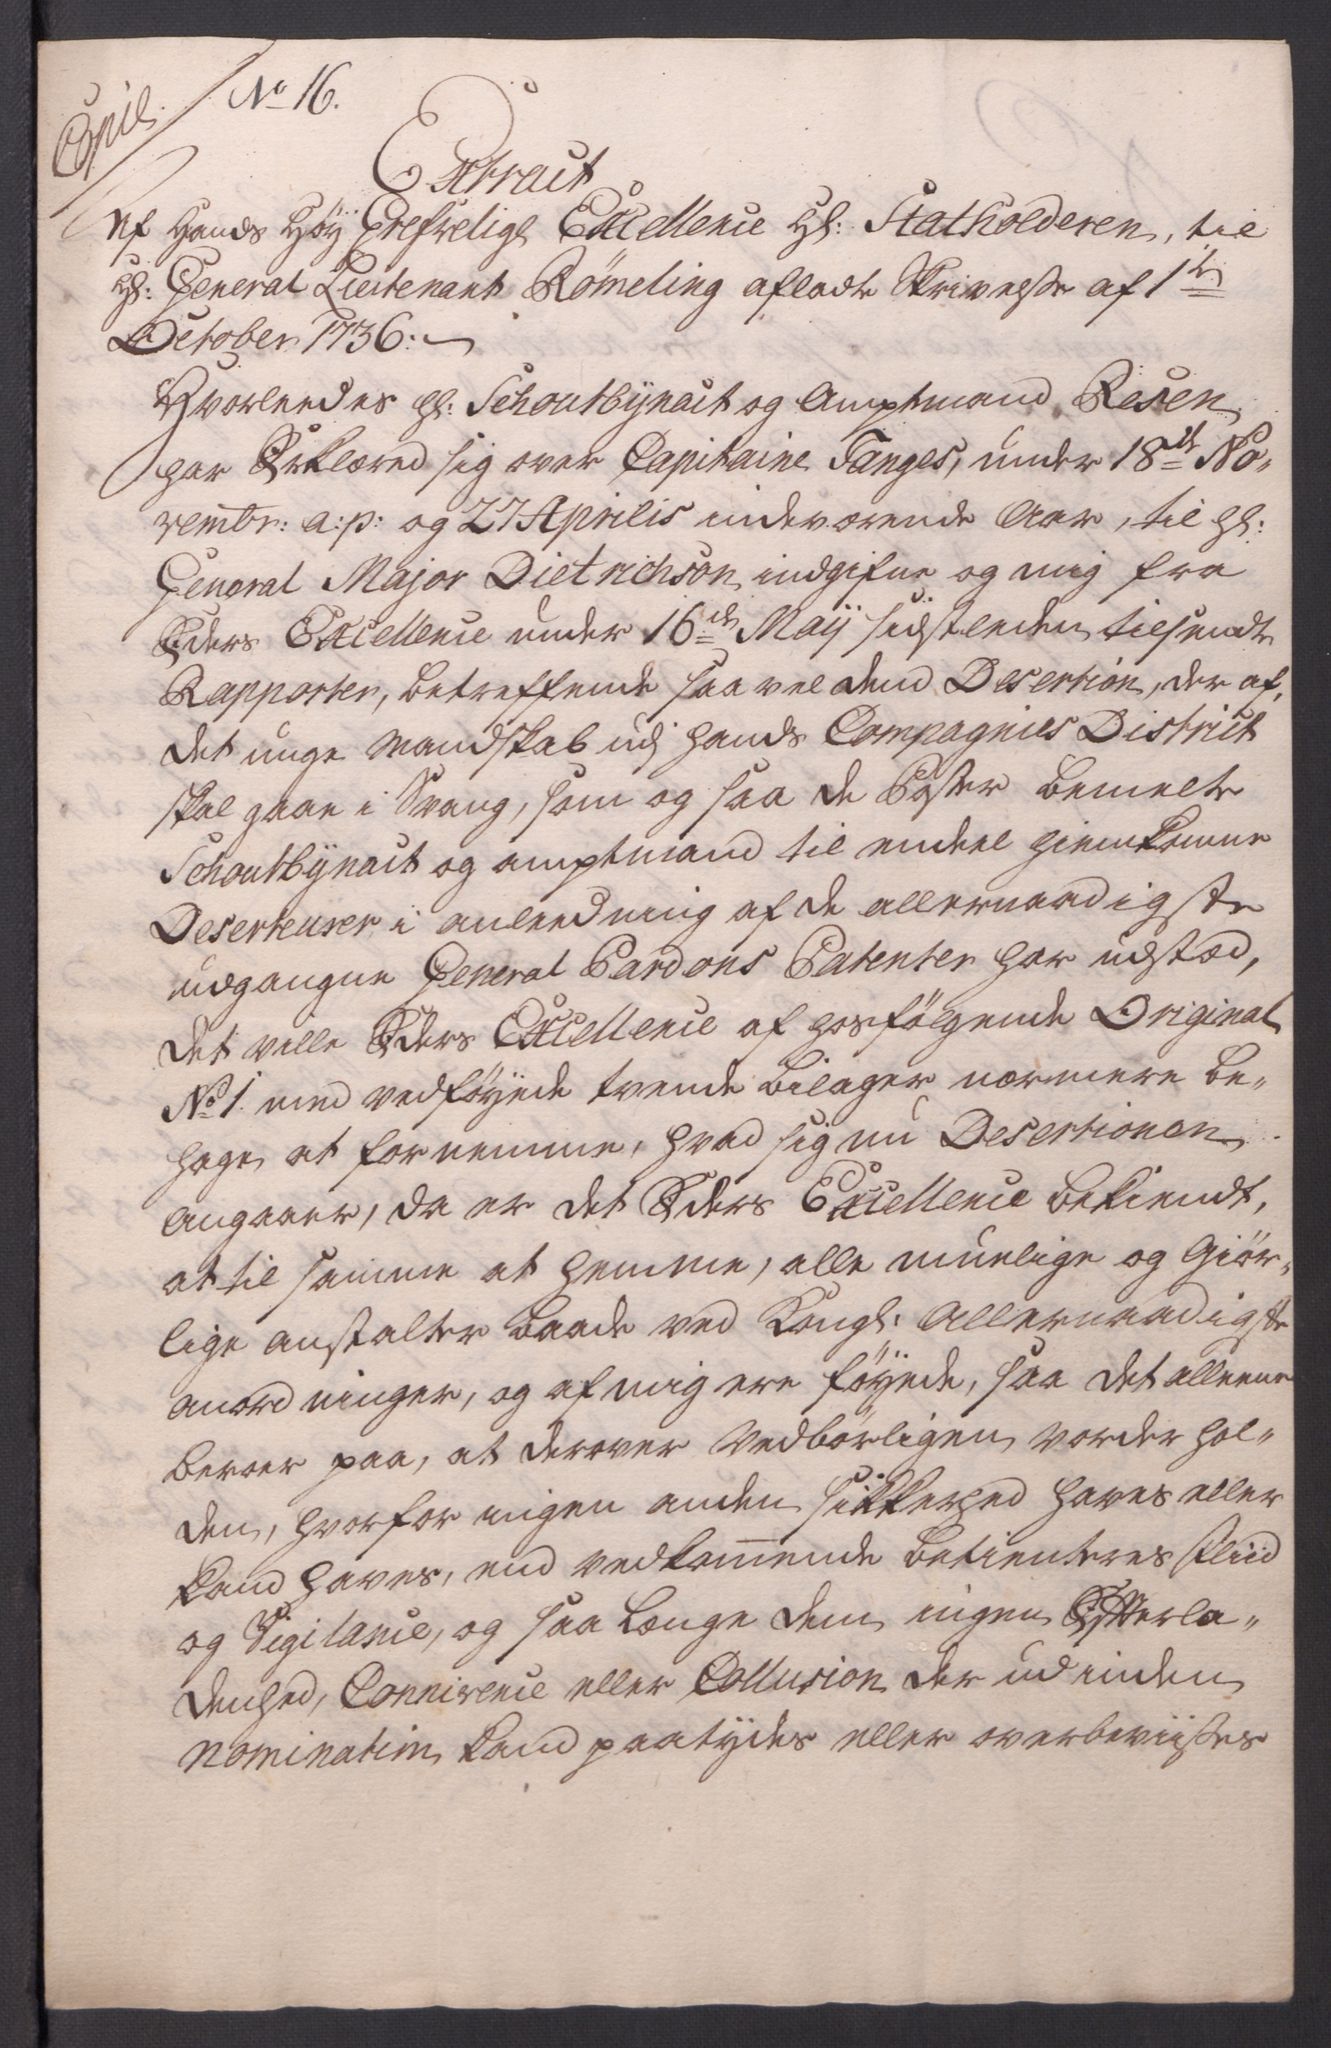 Copie.
No 16.
Extract
Af Hands Høy Grefvelige Excellence Hl: Statholderen, til
Hl: General Lieutenant Rømeling afladte Skrivelse af 1te
October 1736:
Hvorleedes hl: Schoutbÿnact og Amptmand Resen
har Erklæred sig over Capitaine Tanges, under 18de No„
vembr: a: p: og 27 Aprilis indeværende Aar, til hl:
General Major Dietrichson indgifne og mig fra
Eders Excellence under 16de Maÿ sidstleden tilsendte
Rapporter, betreffende saa vel dend Desertion, der af
det unge Mandskab udj hands Compagnies District
skal gaae i Svang, som og saa de Passer bemelte
Schoutbÿnact og amptmand til endeel hiemkomne
Deserteurer i anleedning af de allernaadigste
udgangne General Pardons Patenter har udstæd,
det ville Eders Excellence af hosfølgende Original
No 1. med vedføyede tvende bilager nærmere be„
hage at fornemme, hvad sig nu Desertionen
angaaer, da er det Eders Excellence bekiendt,
at til samme at hemme, alle muelige og Giør„
lige anstalter baade ved Kongl: Allernaadigste
anordninger, og af mig ere føÿede, saa det alleene
beroer paa, at derover Vedbørligen vorder hol„
den, hvorfor ingen anden sikkerhed haves eller
kand haves, end vedkom̅ende betienteres fliid
og Vigilance, og saa længe dem ingen Efterla„
denhed, Connivence eller Collusion der udinden
nominatim kand paatydes eller overbeviises